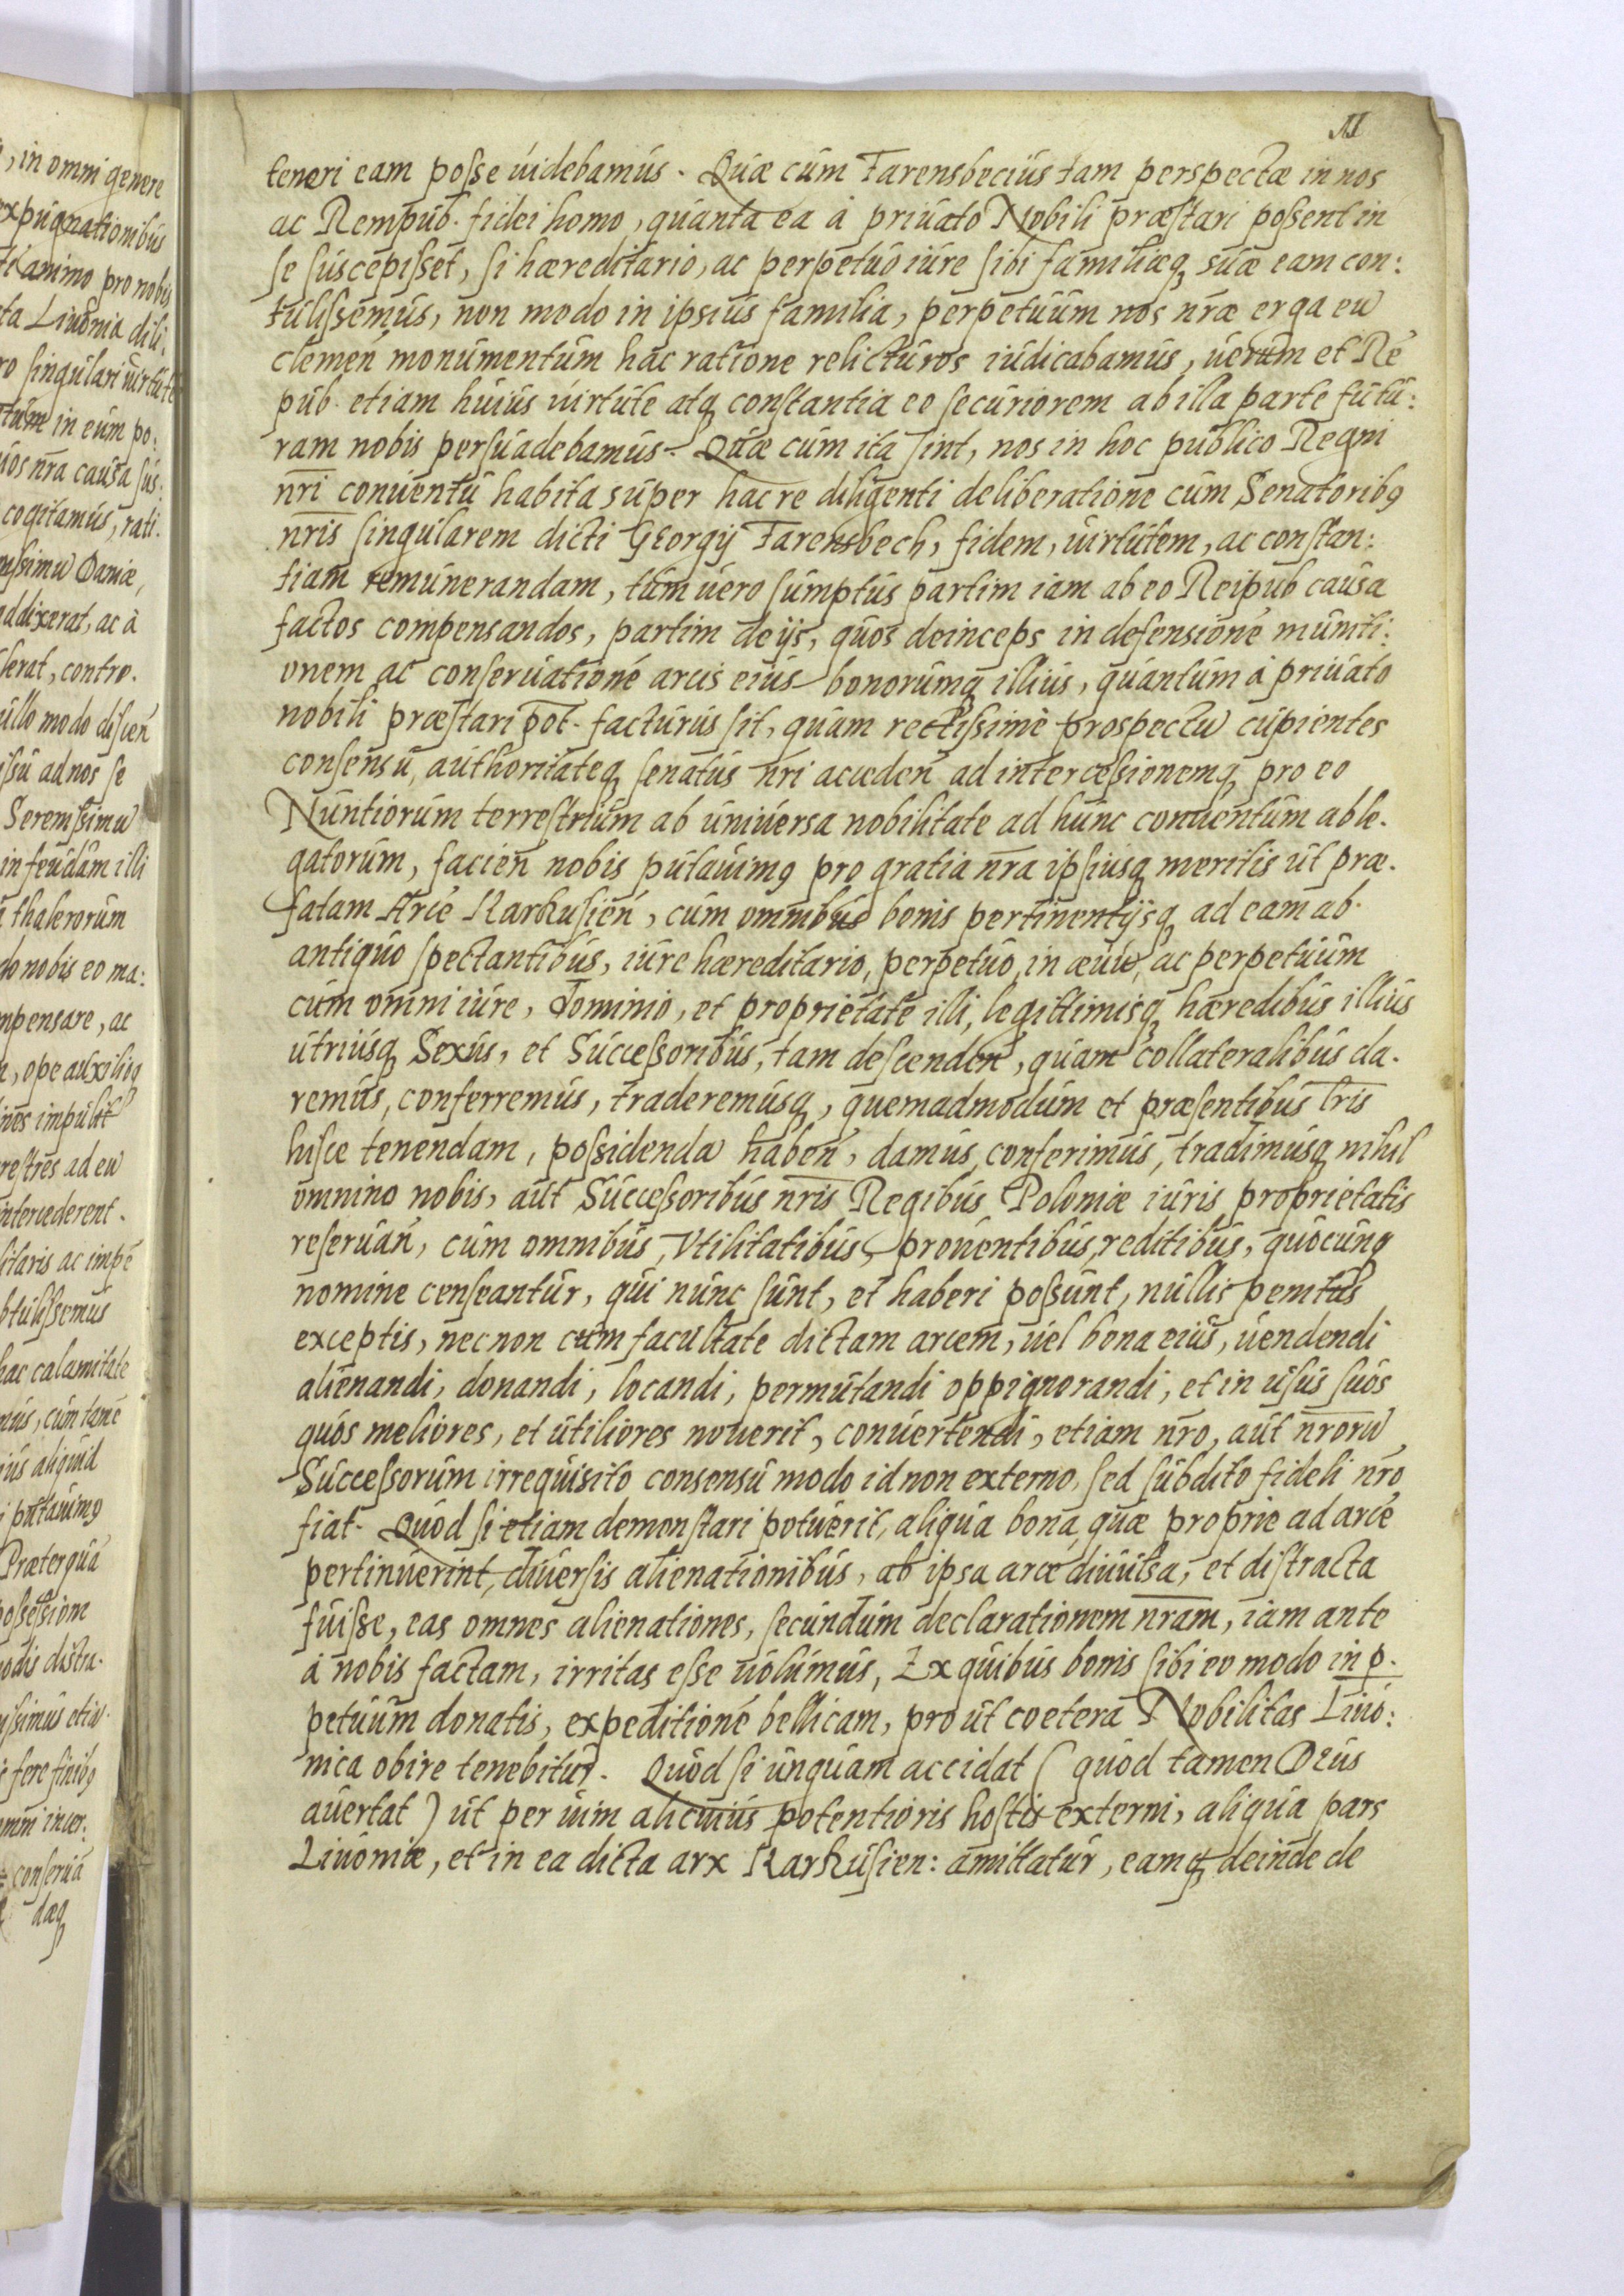 11
teneri eam posse uidebamus. Quæ cum Farensbecius tam perspectæ in nos
ac Rempub. fidei homo, quanta ea à priuato Nobili præstari possent in
se suscepisset, si hæreditario, ac perpetuo iure sibi familiæq suæ eam con:
tulissemus, non modo in ipsius familia, perpetuum nos nræ erga eū
clemen̄ monumentum hac ratione relicturos iudicabamus, uerum et Rē
pub. etiam huius uirtute atq constantia eo securiorem ab illa parte futu:
ram nobis persuadebamus. Quæ cum ita sint, nos in hoc publico Regni
nr̄i conuentu habita super hac re diligenti deliberatione cum Senatorib9
nr̄is singularem dicti GEorgij Farensbech, fidem, uirtutem, ac constan:
tiam remunerandam, tum uero sumptus partim iam ab eo Reipub causa
factos compensandos, partim de ijs, quos deinceps in defensionē muniti:
onem ac conseruationē arcis eius bonorumq illius, quantum à priuato
nobili præstari pot. facturus sit, quam rectissimè prospectū cupientes
consensu, authoritateq senatus nr̄i acceden̄ ad intercessionemq pro eo
Nuntiorum terrestrium ab uniuersa nobilitate ad hunc conuentum able.
gatorum, facien̄ nobis putauim9 pro gratia nr̄a ipsiusq meritis ut præ.
fatam Arcē Karkusien̄, cum omnibus bonis pertinentijsq ad eam ab.
antiquo spectantibus, iure hæreditario, perpetuo, in æuū, ac perpetuum
cum omni iure, Dominio, et proprietate illi, legittimisq hæredibus illius
utriusq Sexus, et Successoribus, tam descenden̄, quam collateralibus da.
remus, conferremus, traderemusq, quemadmodum et præsentibus lr̄is
hisce tenendam, possidendā haben̄, damus, conferimus, tradimusq nihil
omnino nobis, aut Successoribus nr̄is Regibus Poloniæ iuris proprietatis
reseruan̄, cum omnibus, Vtilitatibus, prouentibus, reditibus, quocunq
nomine censeantur, qui nunc sunt, et haberi possunt, nullis penitus
exceptis, necnon cum facultate dictam arcem, uel bona eius, uendendi
alienandi, donandi, locandi, permutandi oppignorandi, et in usus suos
quos meliores, et utiliores nouerit, conuertendi, etiam nr̄o, aut nr̄orū
Successorum irrequisito consensu modo id non externo, sed subdito fideli nr̄o
fiat. Quod si etiam demonstari potuerit, aliqua bona, quæ proprie ad arcē
pertinuerint, diuersis alienationibus, ab ipsa arce diuulsa, et distracta
fuisse, eas omnes alienationes, secundum declarationem nr̄am, iam ante
à nobis factam, irritas esse uolumus, Ex quibus bonis sibi eo modo in p.
petuum donatis, expeditionē bellicam, prout coetera Nobilitas Liuo:
nica obire tenebitur. Quod si unquam accidat ( quod tamen DEus
auertat ) ut per uim alicuius potentioris hostis externi, aliqua pars
Liuoniæ, et in ea dicta arx Karkusien: amittatur, eamq deinde de